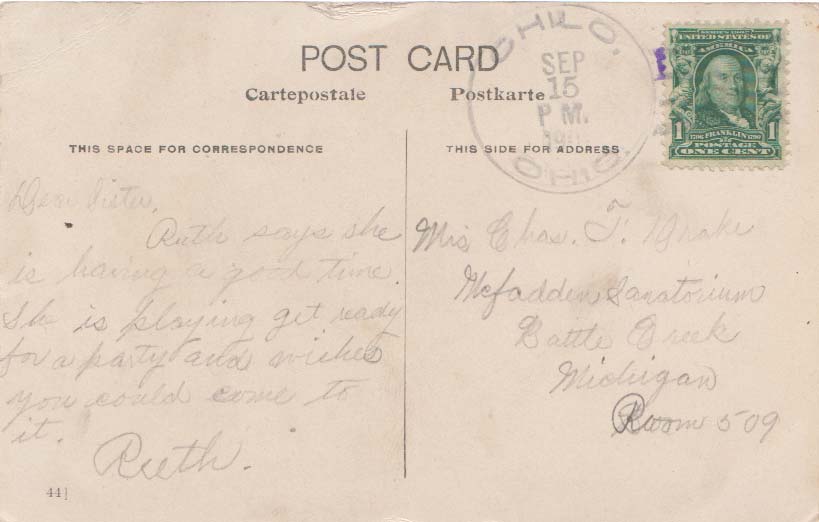 POST CARD
Cartepostale Postkarte
THIS SPACE FOR CORRESPONDENCE
THIS SIDE FOR ADDRESS
CHILO.
SEP
15
P M.
OHIO.
SERIES 1902
UNITED STATES OF
AMERICA
1706 FRANKLIN 1790
1 POSTAGE 1
ONE CENT
Dear Sister,
Ruth says she
is having a good time.
She is playing get ready
for a party and wishes
you could come to
it.
Ruth.
Mrs Chas. T. Drake
Mcfadden Sanatorium
Battle Creek
Michigan
Room 509
441